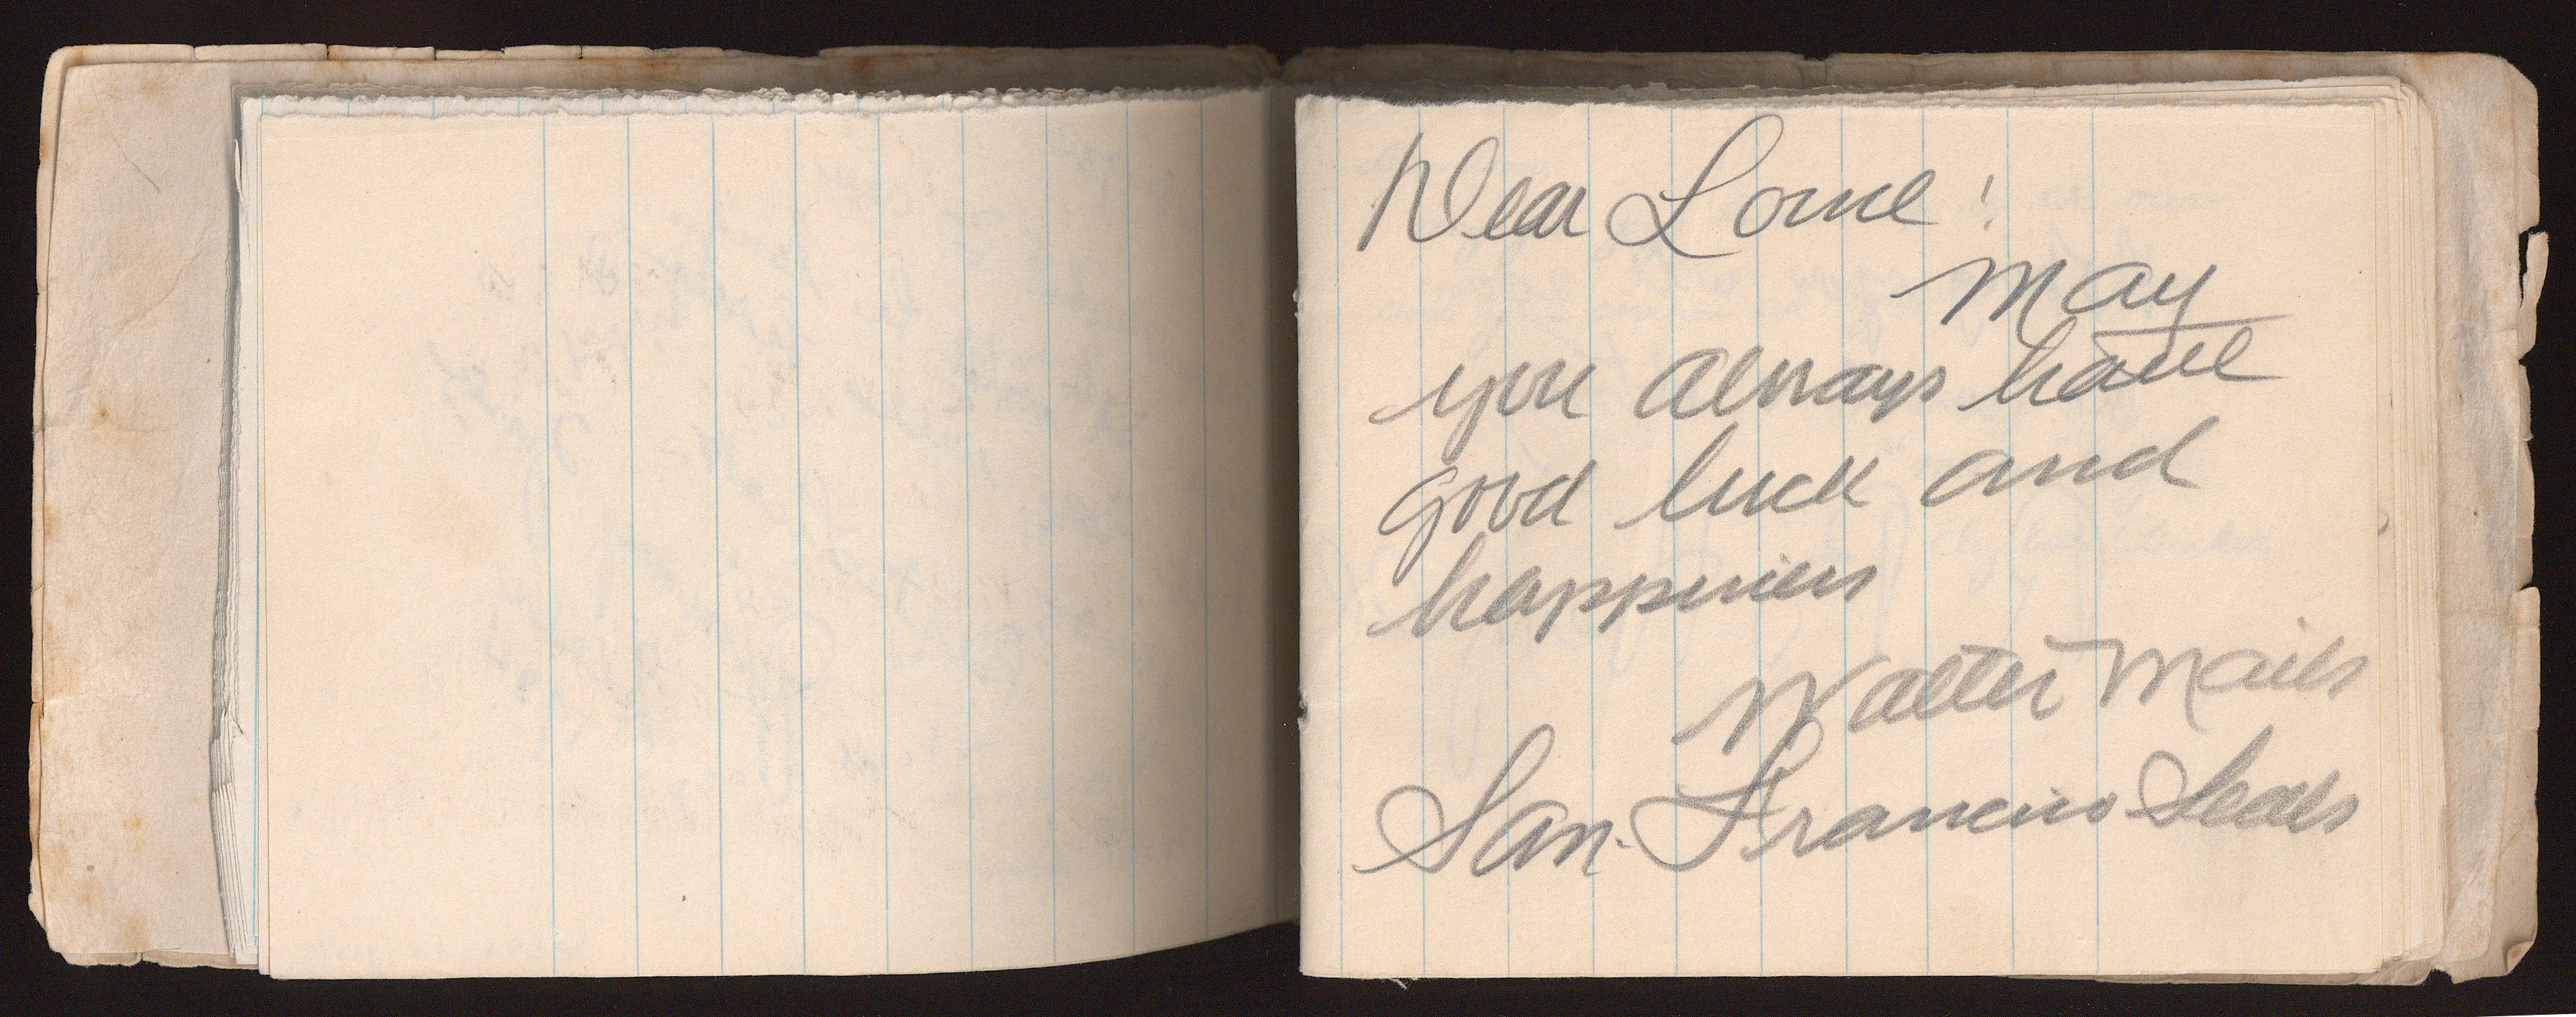 Dear Lorne!
May
you always have
good luck and
happiness
Walter Mails
San Francisco Seals